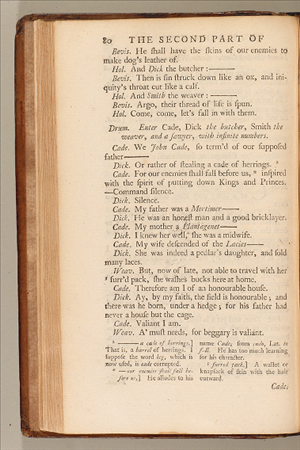 80 THE SECOND PART OF
Bevis. He shall have the skins of our enemies to
make dog's leather of.
Hol. And Dick the butcher:———
Bevis. Then is sin struck down like an ox, and ini-
quity's throat cut like a calf.
Hol. And Smith the weaver:———
Bevis. Argo, their thread of life is spun.
Hol. Come, come, let's fall in with them.
Drum. Enter Cade, Dick the butcher, Smith the
weaver, and a sawyer, with infinite numbers.
Cade. We John Cade, so term'd of our supposed
father———
Dick. Or rather of stealing a cade of herrings.
Cade. For our enemies shall fall before us, inspired
with the spirit of putting down Kings and Princes.
—Command silence.
Dick. Silence.
Cade. My father was a Mortimer———
Dick. He was an honest man and a good bricklayer.
Cade. My mother a Plantagenet———
Dick. I knew her well, she was a midwife.
Cade. My wife descended of the Lacies———
Dick. She was indeed a pedlar's daughter, and sold
many laces.
Weav. But, now of late, not able to travel with her
furr'd pack, she washes bucks here at home.
Cade. Therefore am I of an honourable house.
Dick. Ay, by my faith, the field is honourable; and
there was he born, under a hedge; for his father had
never a house but the cage.
Cade. Valiant I am.
Weav. A' must needs, for beggary is valiant.
———a cade of herrings.]
That is, a barrel of herrings. I
suppose the word keg, which is
now used, is cade corrupted.
—our enemies shall fall be-
fore us,] He alludes to his
name Cade, from cado, Lat. to
fall. He has too much learning
for his character.
furred pack.] A wallet or
knapsack of skin with the hair
outward.
Cade.